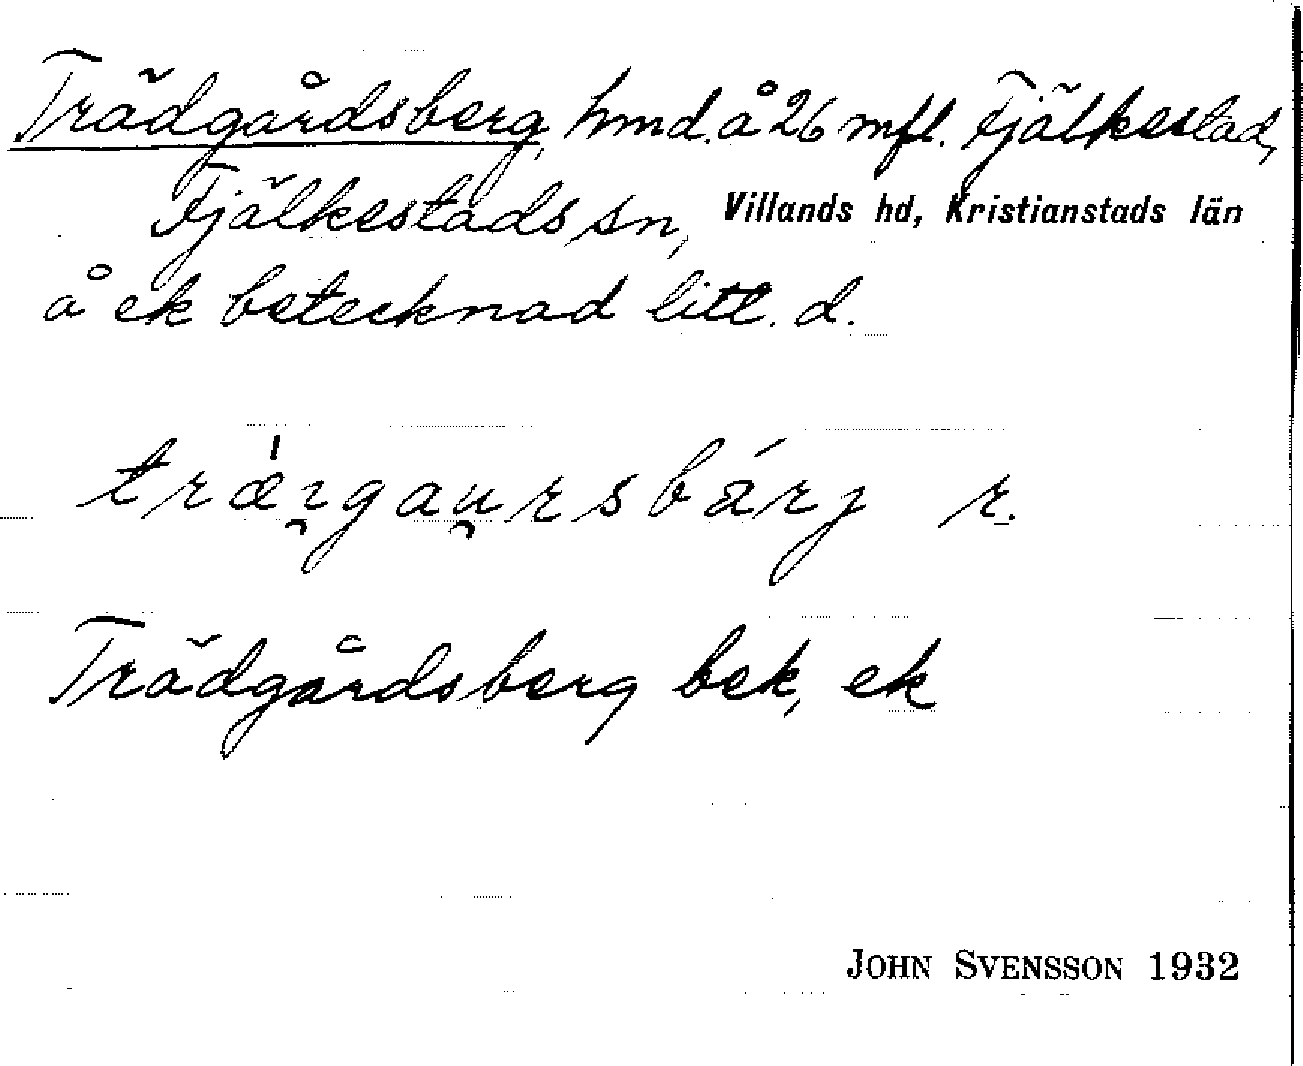 Trädgårdsberg, hmd. å 26 mfl. Fjälkestad,
Fjälkestads sn, Villands hd, Kristianstads län
å ek betecknad litt. d.
træ̍ɪ̯gau̯rsbárj r.
Trädgårdsberg bek, ek
JOHN SVENSSON 1932